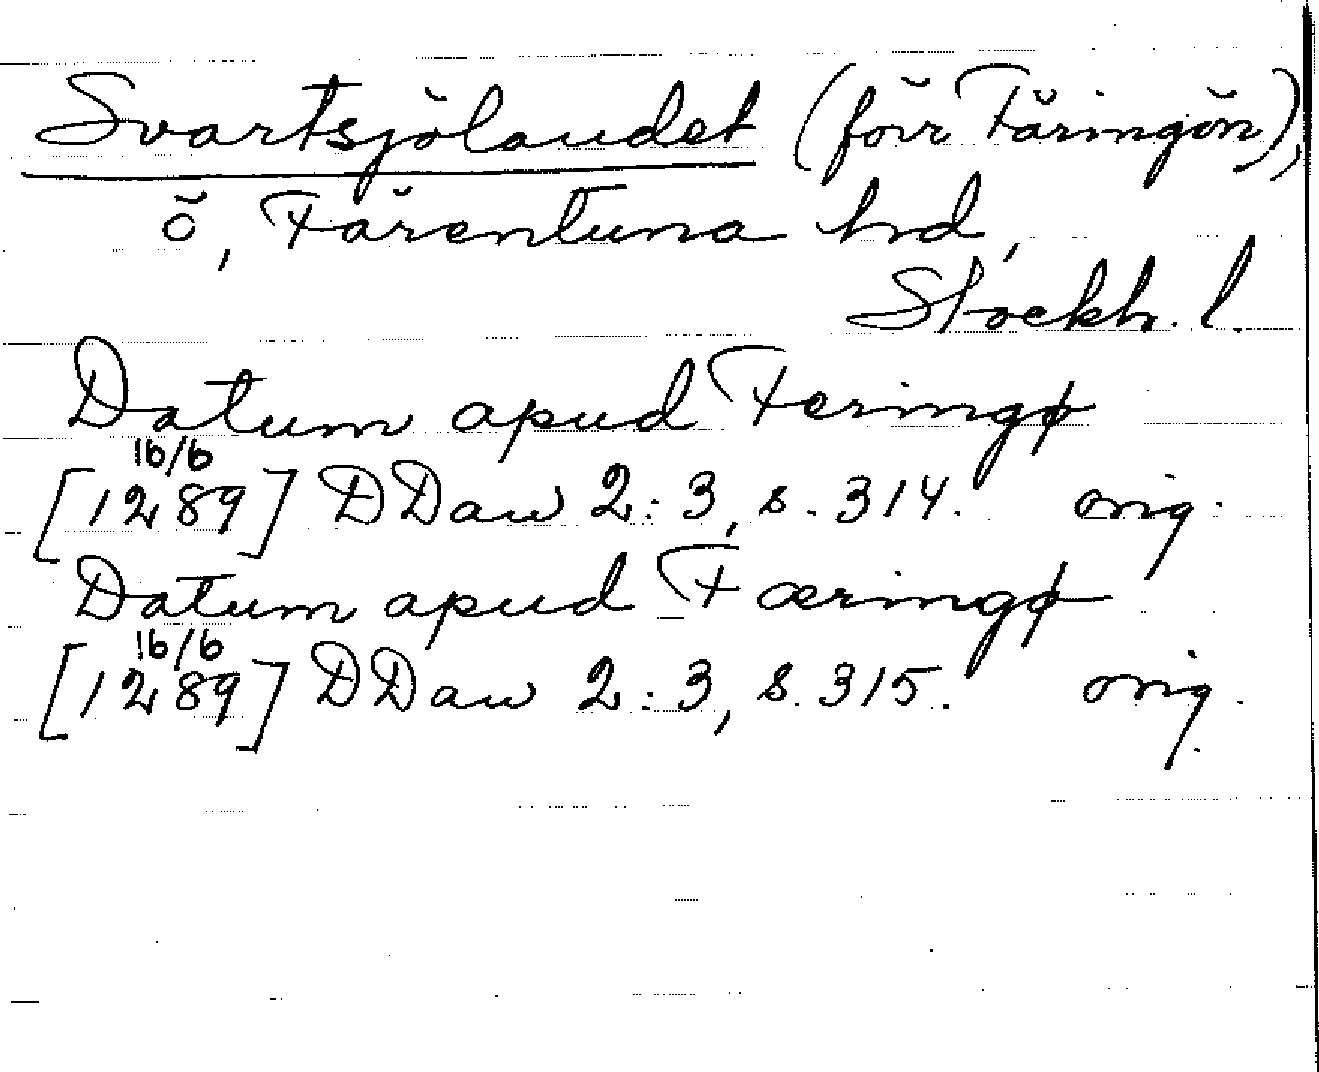 Svartsjölandet (förr Färingön),
ö, Färentuna hrd,
Stockh. l.
Datum apud Feringø
16/6
[1289] DDan 2:3, s. 314. orig.
Datum apud Færingø
16/6
[1289] DDan 2:3, s. 315. orig.